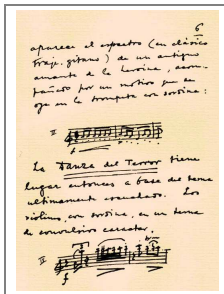 6
aparece el espectro (en clásico
traje gitano) de un antiguo
amante de la heroína, acom-
pañado por un motivo que se
oye en la trompeta con sordina:
II
f
La Danza del Terror tiene
lugar entonces a base del tema
ultimamente escuchado. Los
violines, con sordina, en un tema
de convulsivo carácter,
II
f